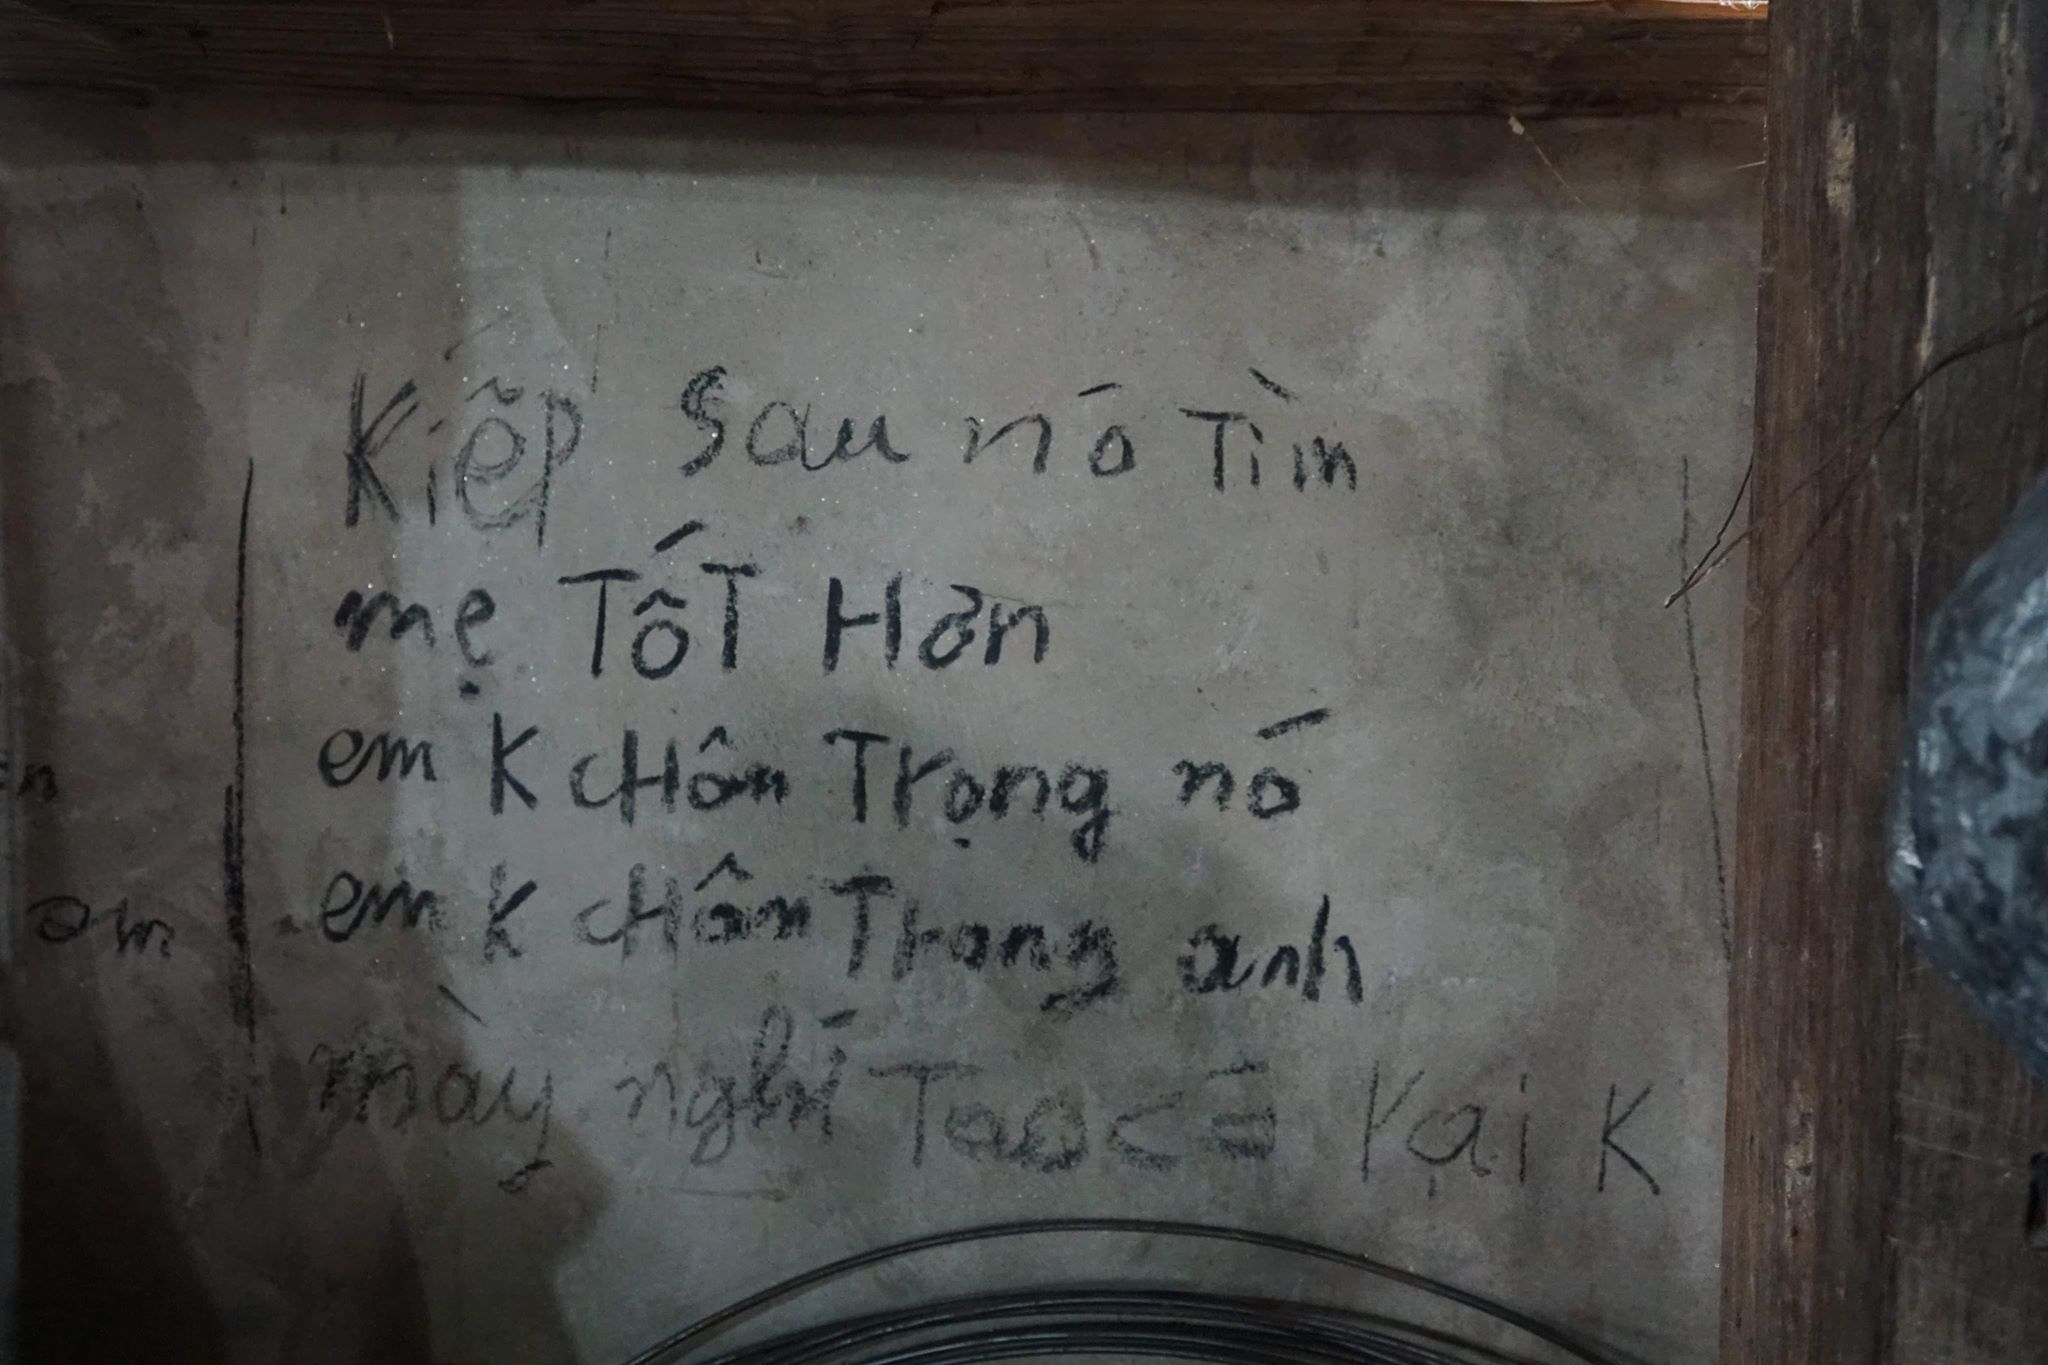 Kiẽp Sau nó Tìm
mẹ TốT Hơn
em K cHôn Trọng nó
em K cHôn Trong anh
mày nghĩ Tao có Vại K
em